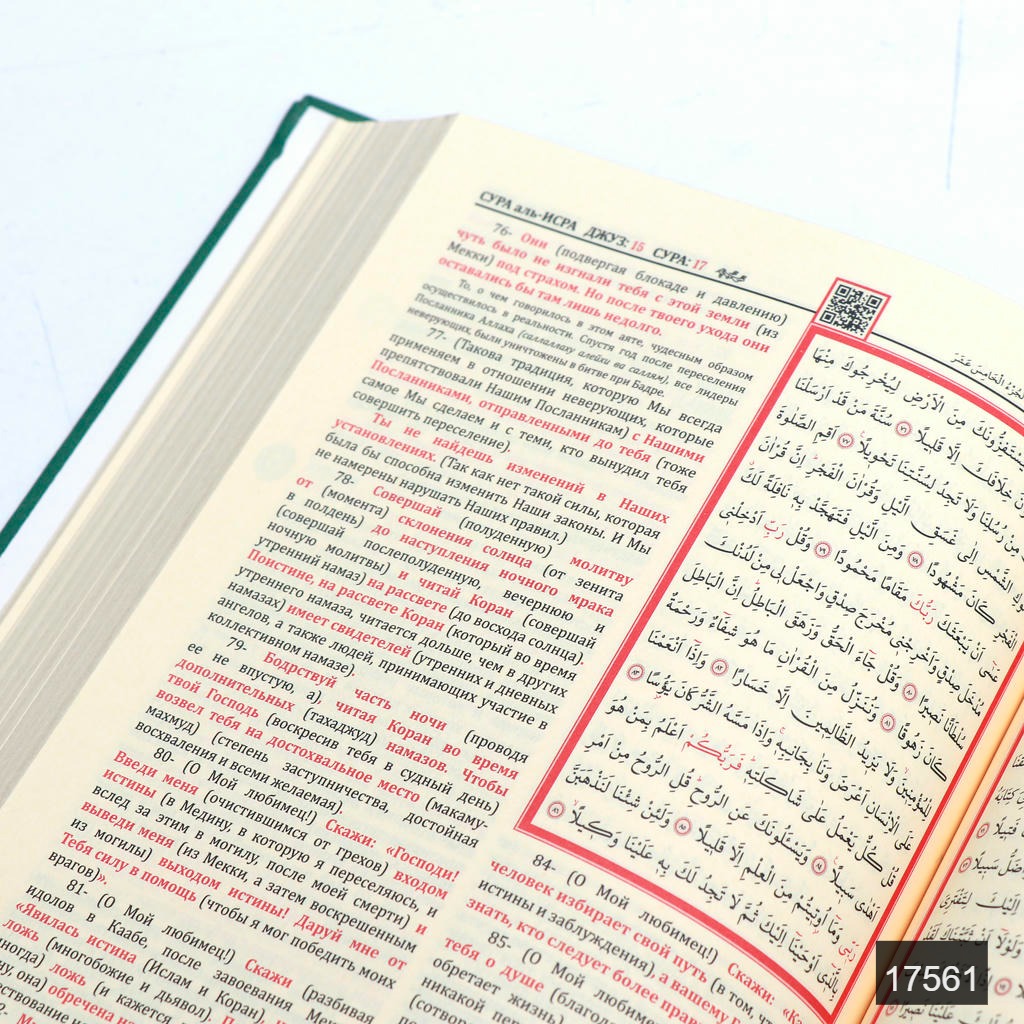 СУРА аль-ИСРА ДЖУЗ: 15 СУРА: 17
76- Они (подвергая блокаде и давлению)
чуть было не изгнали тебя с этой земли (из
Мекки) под страхом. Но после твоего ухода они
оставались бы там лишь недолго.
То, о чем говорилось в этом аяте, чудесным образом
осуществилось в реальности. Спустя год после переселения
Посланника Аллаха (саллаллагу алейхи ва саллям), все лидеры
неверующих были уничтожены в битве при Бадре.
77- (Такова традиция, которую Мы всегда
применяем в отношении неверующих, которые
препятствовали Нашим Посланникам) с Нашими
Посланниками, отправленными до тебя (тоже
самое Мы сделаем и с теми, кто вынудил тебя
совершить переселение).
Ты не найдешь изменений в Наших
установлениях. (Так как нет такой силы, которая
была бы способна изменить Наши законы. И Мы
не намерены нарушать Наших правил.)
78- Совершай (полуденную) молитву
от (момента) склонения солнца (от зенита
в полдень) до наступления ночного мрака
(совершай послеполуденную, вечернюю и
ночную молитвы) и читай Коран (совершай
утренний намаз) на рассвете (до восхода солнца).
Поистине, на рассвете Коран (который во время
утреннего намаза, читается дольше, чем в других
намазах) имеет свидетелей (утренних и дневных
ангелов, а также людей, принимающих участие в
коллективном намазе).
79- Бодрствуй часть ночи (проводя
ее не впустую, а), читая Коран во время
дополнительных (тахаджуд) намазов. Чтобы
твой Господь (воскресив тебя в судный день)
возвел тебя на достохвальное место (макаму-
махмуд) (степень заступничества, достойная
восхваления и всеми желаемая).
80- (О Мой любимец!) Скажи: «Господи!
Введи меня (очистившимся от грехов) входом
истины (в Медину, в которую я переселяюсь, и
вслед за этим в могилу, после моей смерти) и
выведи меня (из Мекки, а затем воскрешенным
из могилы) выходом истины! Даруй мне от
Тебя силу в помощь (чтобы я мог победить моих
врагов)».
81- (О Мой любимец!) Скажи (разбивая
идолов в Каабе, после завоевания Мекки):
«Явилась истина (Ислам и Коран), и
ложь (многобожие и дьявол).
ложь (и кажется
она) обречена на
84- (О Мой любимец!) Скажи:
человек избирает свой путь (в том,
истины и заблуждения), а вашему
знать, кто следует более
85- (О Мой
тебя о душе (благо
обретает жизнь)
никакой
لِيُخْرِجُوكَ مِنْهَا
خِلَافَكَ اِلَّا قَلِيلًا ٧٦ سُنَّةَ مَنْ قَدْ اَرْسَلْنَا
مِنْ رُسُلِنَا وَلَا تَجِدُ لِسُنَّتِنَا تَحْوِيلًا ٧٧ اَقِمِ الصَّلٰوةَ
الشَّمْسِ اِلٰى غَسَقِ الَّيْلِ وَقُرْاٰنَ الْفَجْرِ اِنَّ قُرْاٰنَ
الْفَجْرِ كَانَ مَشْهُودًا ٧٨ وَمِنَ الَّيْلِ فَتَهَجَّدْ بِهِ نَافِلَةً لَكَ
عَسٰى اَنْ يَبْعَثَكَ رَبُّكَ مَقَامًا مَحْمُودًا ٧٩ وَقُلْ رَبِّ اَدْخِلْنِى
مُدْخَلَ صِدْقٍ وَاَخْرِجْنِى مُخْرَجَ صِدْقٍ وَاجْعَلْ لِى مِنْ لَدُنْكَ
سُلْطَانًا نَصِيرًا ٨٠ وَقُلْ جَاءَ الْحَقُّ وَزَهَقَ الْبَاطِلُ اِنَّ الْبَاطِلَ
كَانَ زَهُوقًا ٨١ وَنُنَزِّلُ مِنَ الْقُرْاٰنِ مَا هُوَ شِفَاءٌ وَرَحْمَةٌ
لِلْمُؤْمِنِينَ وَلَا يَزِيدُ الظَّالِمِينَ اِلَّا خَسَارًا ٨٢ وَاِذَا اَنْعَمْنَا
عَلَى الْاِنْسَانِ اَعْرَضَ وَنَاٰ بِجَانِبِهِ وَاِذَا مَسَّهُ الشَّرُّ كَانَ يَؤُسًا ٨٣
قُلْ كُلٌّ يَعْمَلُ عَلٰى شَاكِلَتِهِ فَرَبُّكُمْ اَعْلَمُ بِمَنْ هُوَ
اَهْدٰى سَبِيلًا ٨٤ وَيَسْـَٔلُونَكَ عَنِ الرُّوحِ قُلِ الرُّوحُ مِنْ اَمْرِ
رَبِّى وَمَا اُو۫تِيتُمْ مِنَ الْعِلْمِ اِلَّا قَلِيلًا ٨٥ وَلَئِنْ شِئْنَا لَنَذْهَبَنَّ
بِالَّذِى اَوْحَيْنَا اِلَيْكَ ثُمَّ لَا تَجِدُ لَكَ بِهِ عَلَيْنَا وَكِيلًا ٨٦
17561